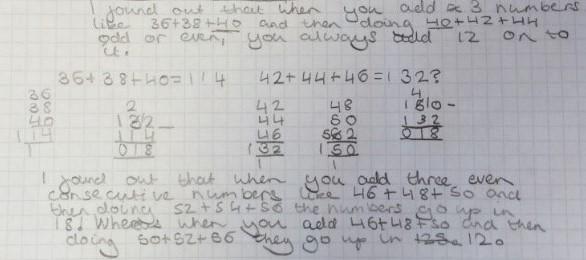 I found out that when you add 3 numbers
like 36+38+40 and then doing 40+42+44
odd or even, you always add 12 on to
it.
36+38+40=114 42+44+46=132?
36
38
40
114
1
2
132 -
114
018
42
44
46
132
1
48
50
52
150
1
4
150 -
132
018
I found out that when you add three even
consecutive numbers like 46+48+50 and
then doing 52+54+56 the numbers go up in
18! Wheras when you add 46+48+50 and then
doing 50+52+56 they go up in 12.